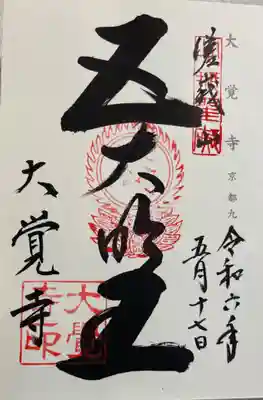 大覚寺 京都九
嵯峨山
令和六年
五月十七日
五大明王
大覚寺
大覺
寺印